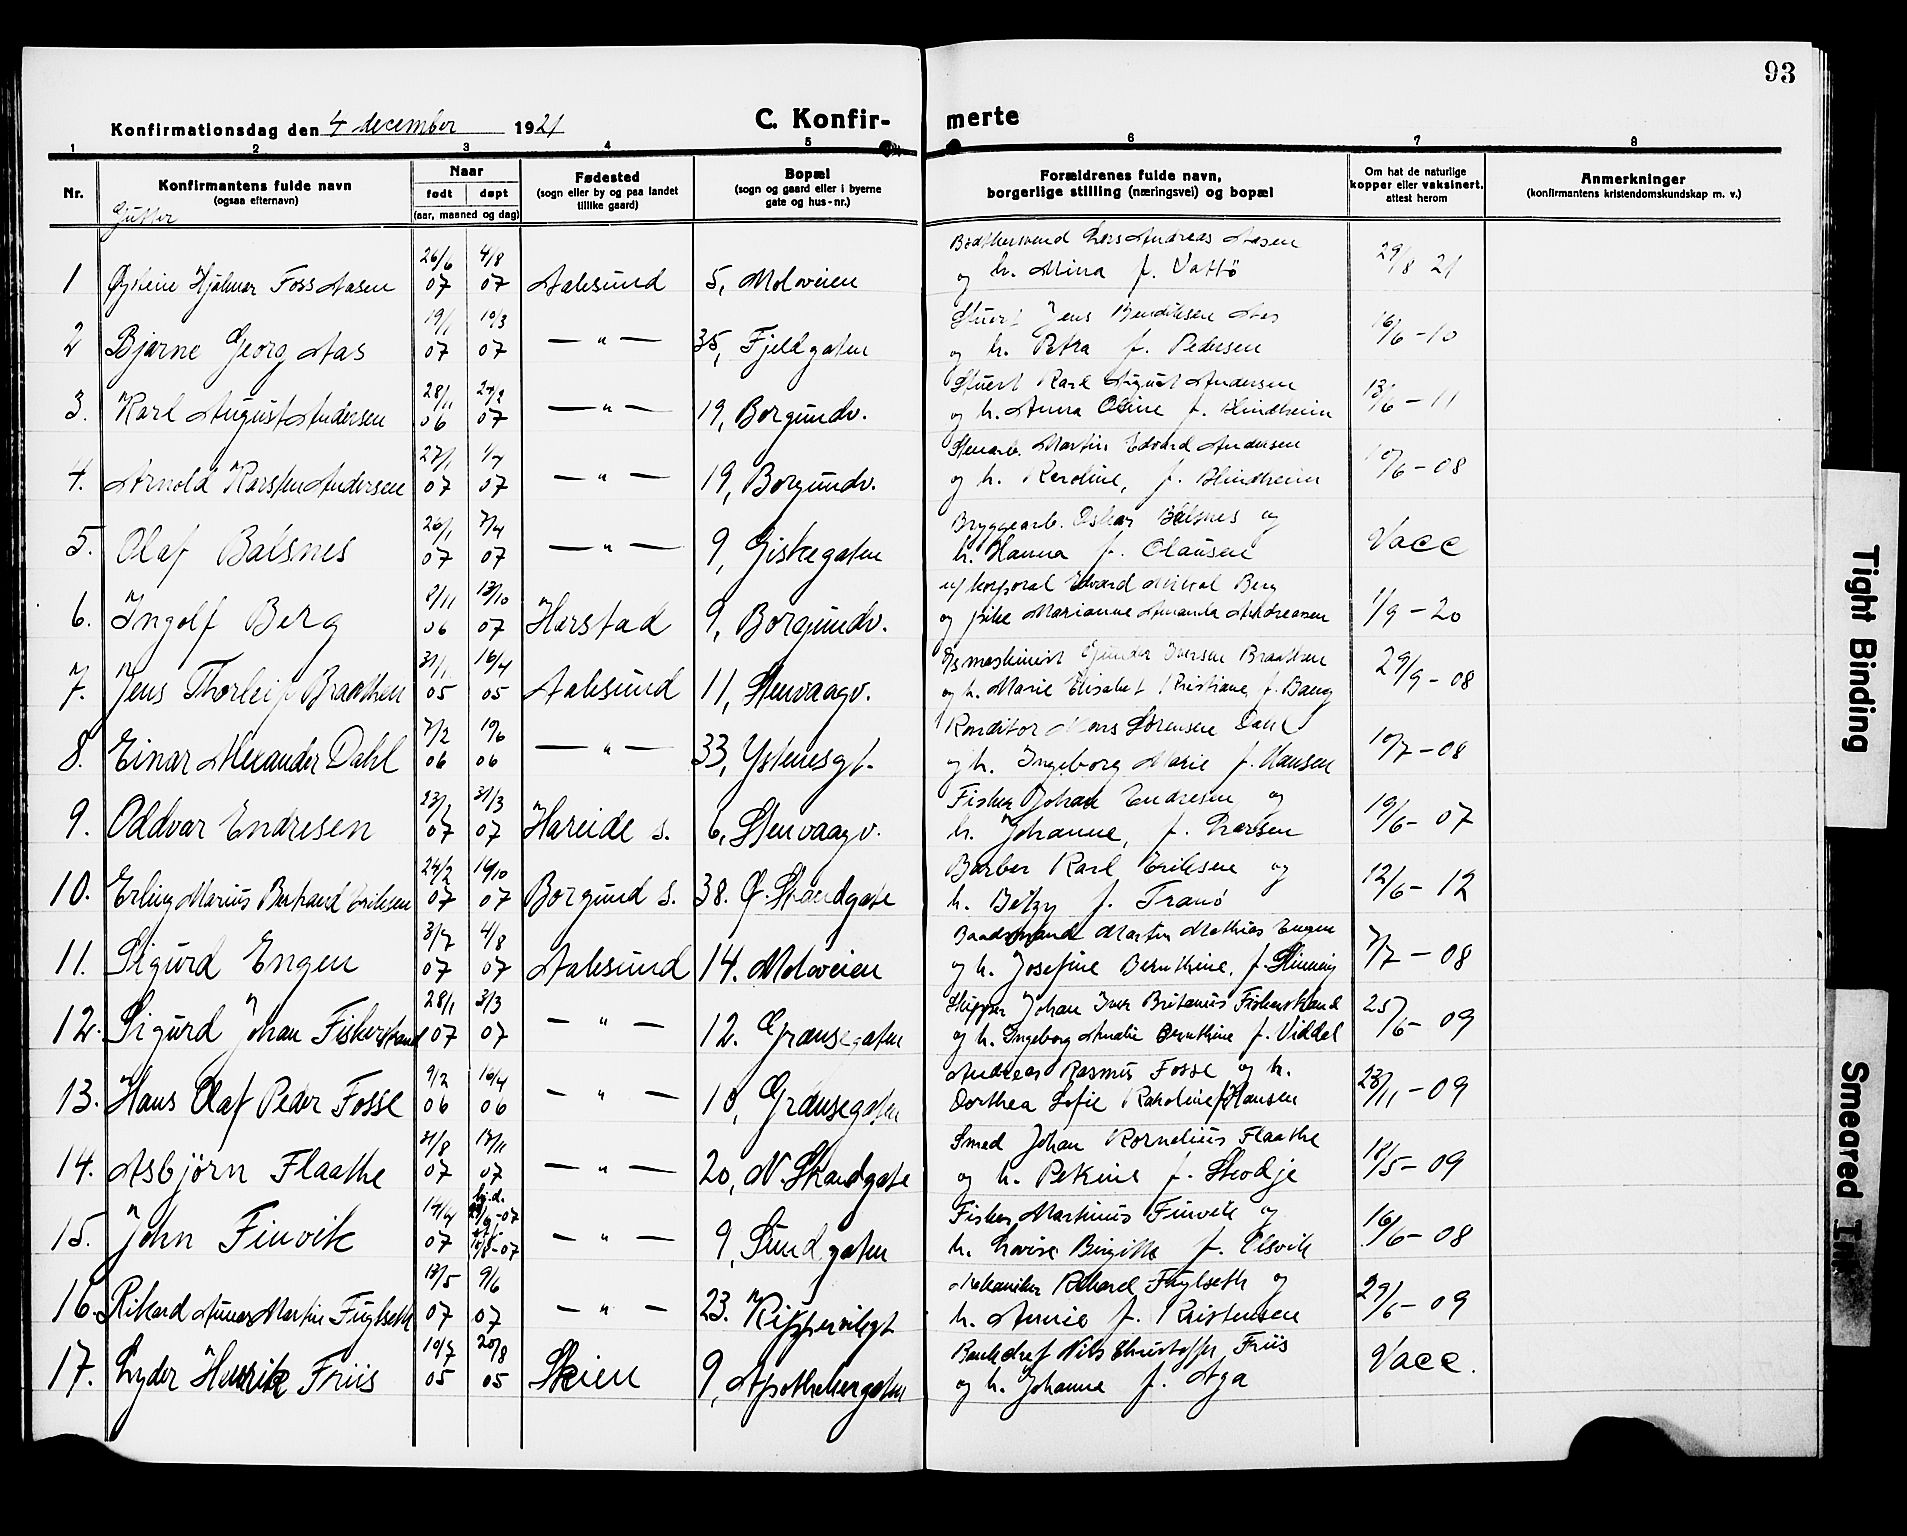 93
Konfirmationsdag den 4 december 1921
C. Konfir-
merte
1 2 3 4 5 6 7 8
Nr.
Konfirmantens fulde navn
(ogsaa efternavn)
Naar
født døpt
(aar, maaned og dag)
Fødested
(sogn eller by og paa landet
tillike gaard)
Bopæl
(sogn og gaard eller i byerne
gate og hus-nr.)
Forældrenes fulde navn,
borgerlige stilling (næringsvei) og bopæl
Om hat de naturlige
kopper eller vaksinert,
attest herom
Anmerkninger
(konfirmantens kristendomskundskap m. v.)
Gutter
26/6 4/8 Lars Andreas Aasen
1 Øystein Hjalmar Foss Aasen 07 07 Aalesund 5, Moloveien og h. Mina f. Vattø 29/8 21
19/1 10/3 Stuert Jens Bendiksen Aas
2 Bjarne Georg Aas 07 07 — " — 35, Fjeldgaten og h. Petra f. Pedersen 16/6 - 10
28/11 27/2 Stuert Karl August Andersen
3. Karl August Andersen 06 07 — " — 19, Borgundv. og h. Anna Oline f. Blindheim 13/6 - 11
27/1 1/4 Stenarb. Martin Edvard Andersen
4. Arnold Karsten Andersen 07 07 — " — 19, Borgundv. og h. Karoline, f. Blindheim 10/6 - 08
26/1 7/4 Bryggearb. Oskar Balsnes og
5. Olaf Balsnes 07 07 — " — 9, Giskegaten h. Hanna f. Olausen Vacc
2/11 13/10 korporal Edvard Berg
6. Ingolf Berg 06 07 Harstad 9, Borgundv. og pike Marianne Amanda Andreassen 1/9 - 20
31/1 16/4 maskinist Gunder Iversen Braathen
7. Jens Thorleif Braathen 05 05 Aalesund 11, Stenvaagv. og h. Marie Elisabet Kristiane f. Bang 29/9 - 08
7/2 19/6 Konditor Mons Sørensen Dahl
8. Einar Alexander Dahl 06 06 — " — 33, Ystenesgt. og h. Ingeborg Marie f. Hansen 10/7 - 08
23/1 31/3 Fisker Johan Endresen og
9. Oddvar Endresen 07 07 Hareide s. 6, Stenvaagv. h. Johanne, f. Larsen 19/6 - 07
24/2 16/10 Barber Karl Eriksen og
10. Erling Marius Bertrand Eriksen 07 07 Borgund s. 38. Ø. Strandgate h. Betzy f. Tranø 12/6 - 12
3/7 4/8 Baadsmand Martin Mathias Engen
11. Sigurd Engen 07 07 Aalesund 14. Moloveien og h. Josefine Bernthine, f. Slinning 7/7 - 08
28/1 3/3 Skipper Johan Iver Britanus Fiskerstrand
12. Sigurd Johan Fiskerstrand 07 07 — " — 12. Grænsegaten og h. Ingeborg Amalie Bernthine f. Viddal 25/6 - 09
9/2 16/4 Andreas Rasmus Fosse og h.
13. Hans Olaf Peder Fosse 06 06 — " — 10, Grænsegaten Dorthea Sofie Karoline f. Hansen 23/11 - 09
31/8 17/11 Smed Johan Kornelius Flaathe
14. Asbjørn Flaathe 07 07 — " — 20, N. Strandgate og h. Petrine f. Skodje 18/5 - 09
14/4 hj.d. Fisker Martinus Finvik og
15. John Finvik 07 — " — 9, Sundgaten h. Lovise Birgitte f. Elsvik 16/6 - 08
13/5 9/6 Mekaniker Rikard Fuglseth og
16. Rikard Annar Martin Fuglseth 07 07 — " — 23. Kippervikgt h. Annie f. Kristensen 29/6 - 09
10/7 20/8 Bankchef Nils Christoffer Friis
17. Lyder Henrik Friis 05 05 Skien 9, Apothekergaten og h. Johanne f. Aga Vacc.
Tight Binding
Smeared Ink